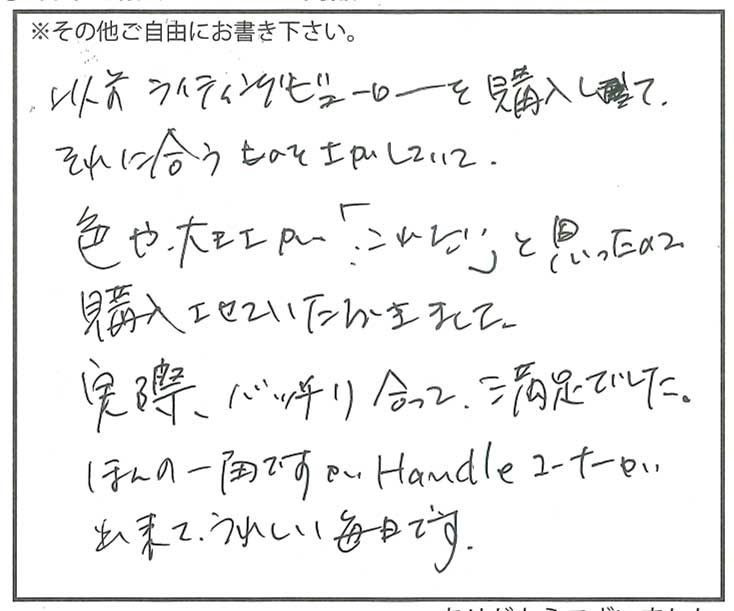 ※その他ご自由にお書き下さい。
以前 ライティングビューローを購入して、
それに合うものをさがしていて、
色や、大きさが「これだ!」と思ったので
購入させていただきまして。
実際、バッチリ合って、大満足でした。
ほんの一角ですが、Handleコーナーが
出来て、うれしい毎日です。